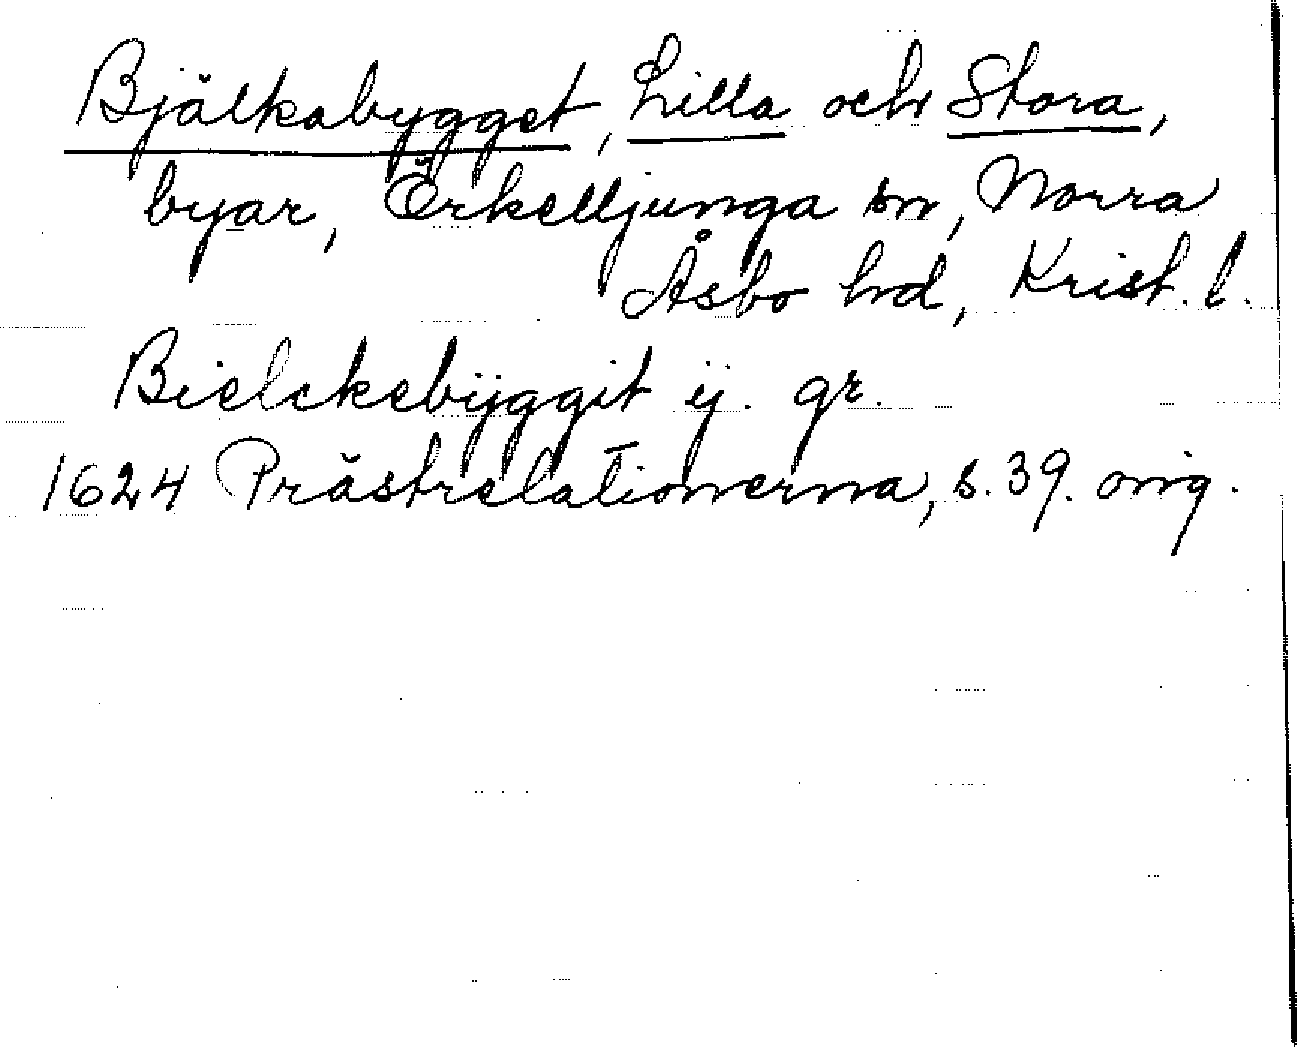 Bjälkabygget, Lilla och Stora,
byar, Örkelljunga sn, Norra
Åsbo hd, Krist. l.
Bielckebÿggit ij. gr.
1624 Prästrelationerna, s. 39. orig.